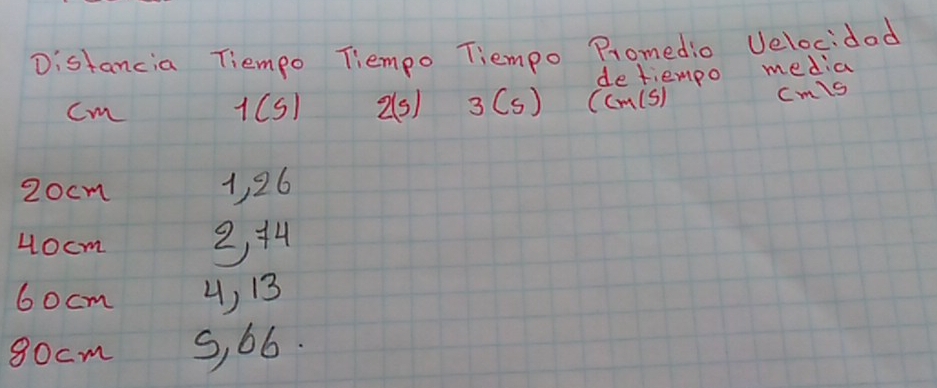 Distancia Tiempo Tiempo Tiempo Promedio Velocidad
de tiempo media
cm 1(s) 2(s) 3(s) (cm(s) cm\s
20cm 1,26
40cm 2,74
60cm 4,13
80cm 5,66.